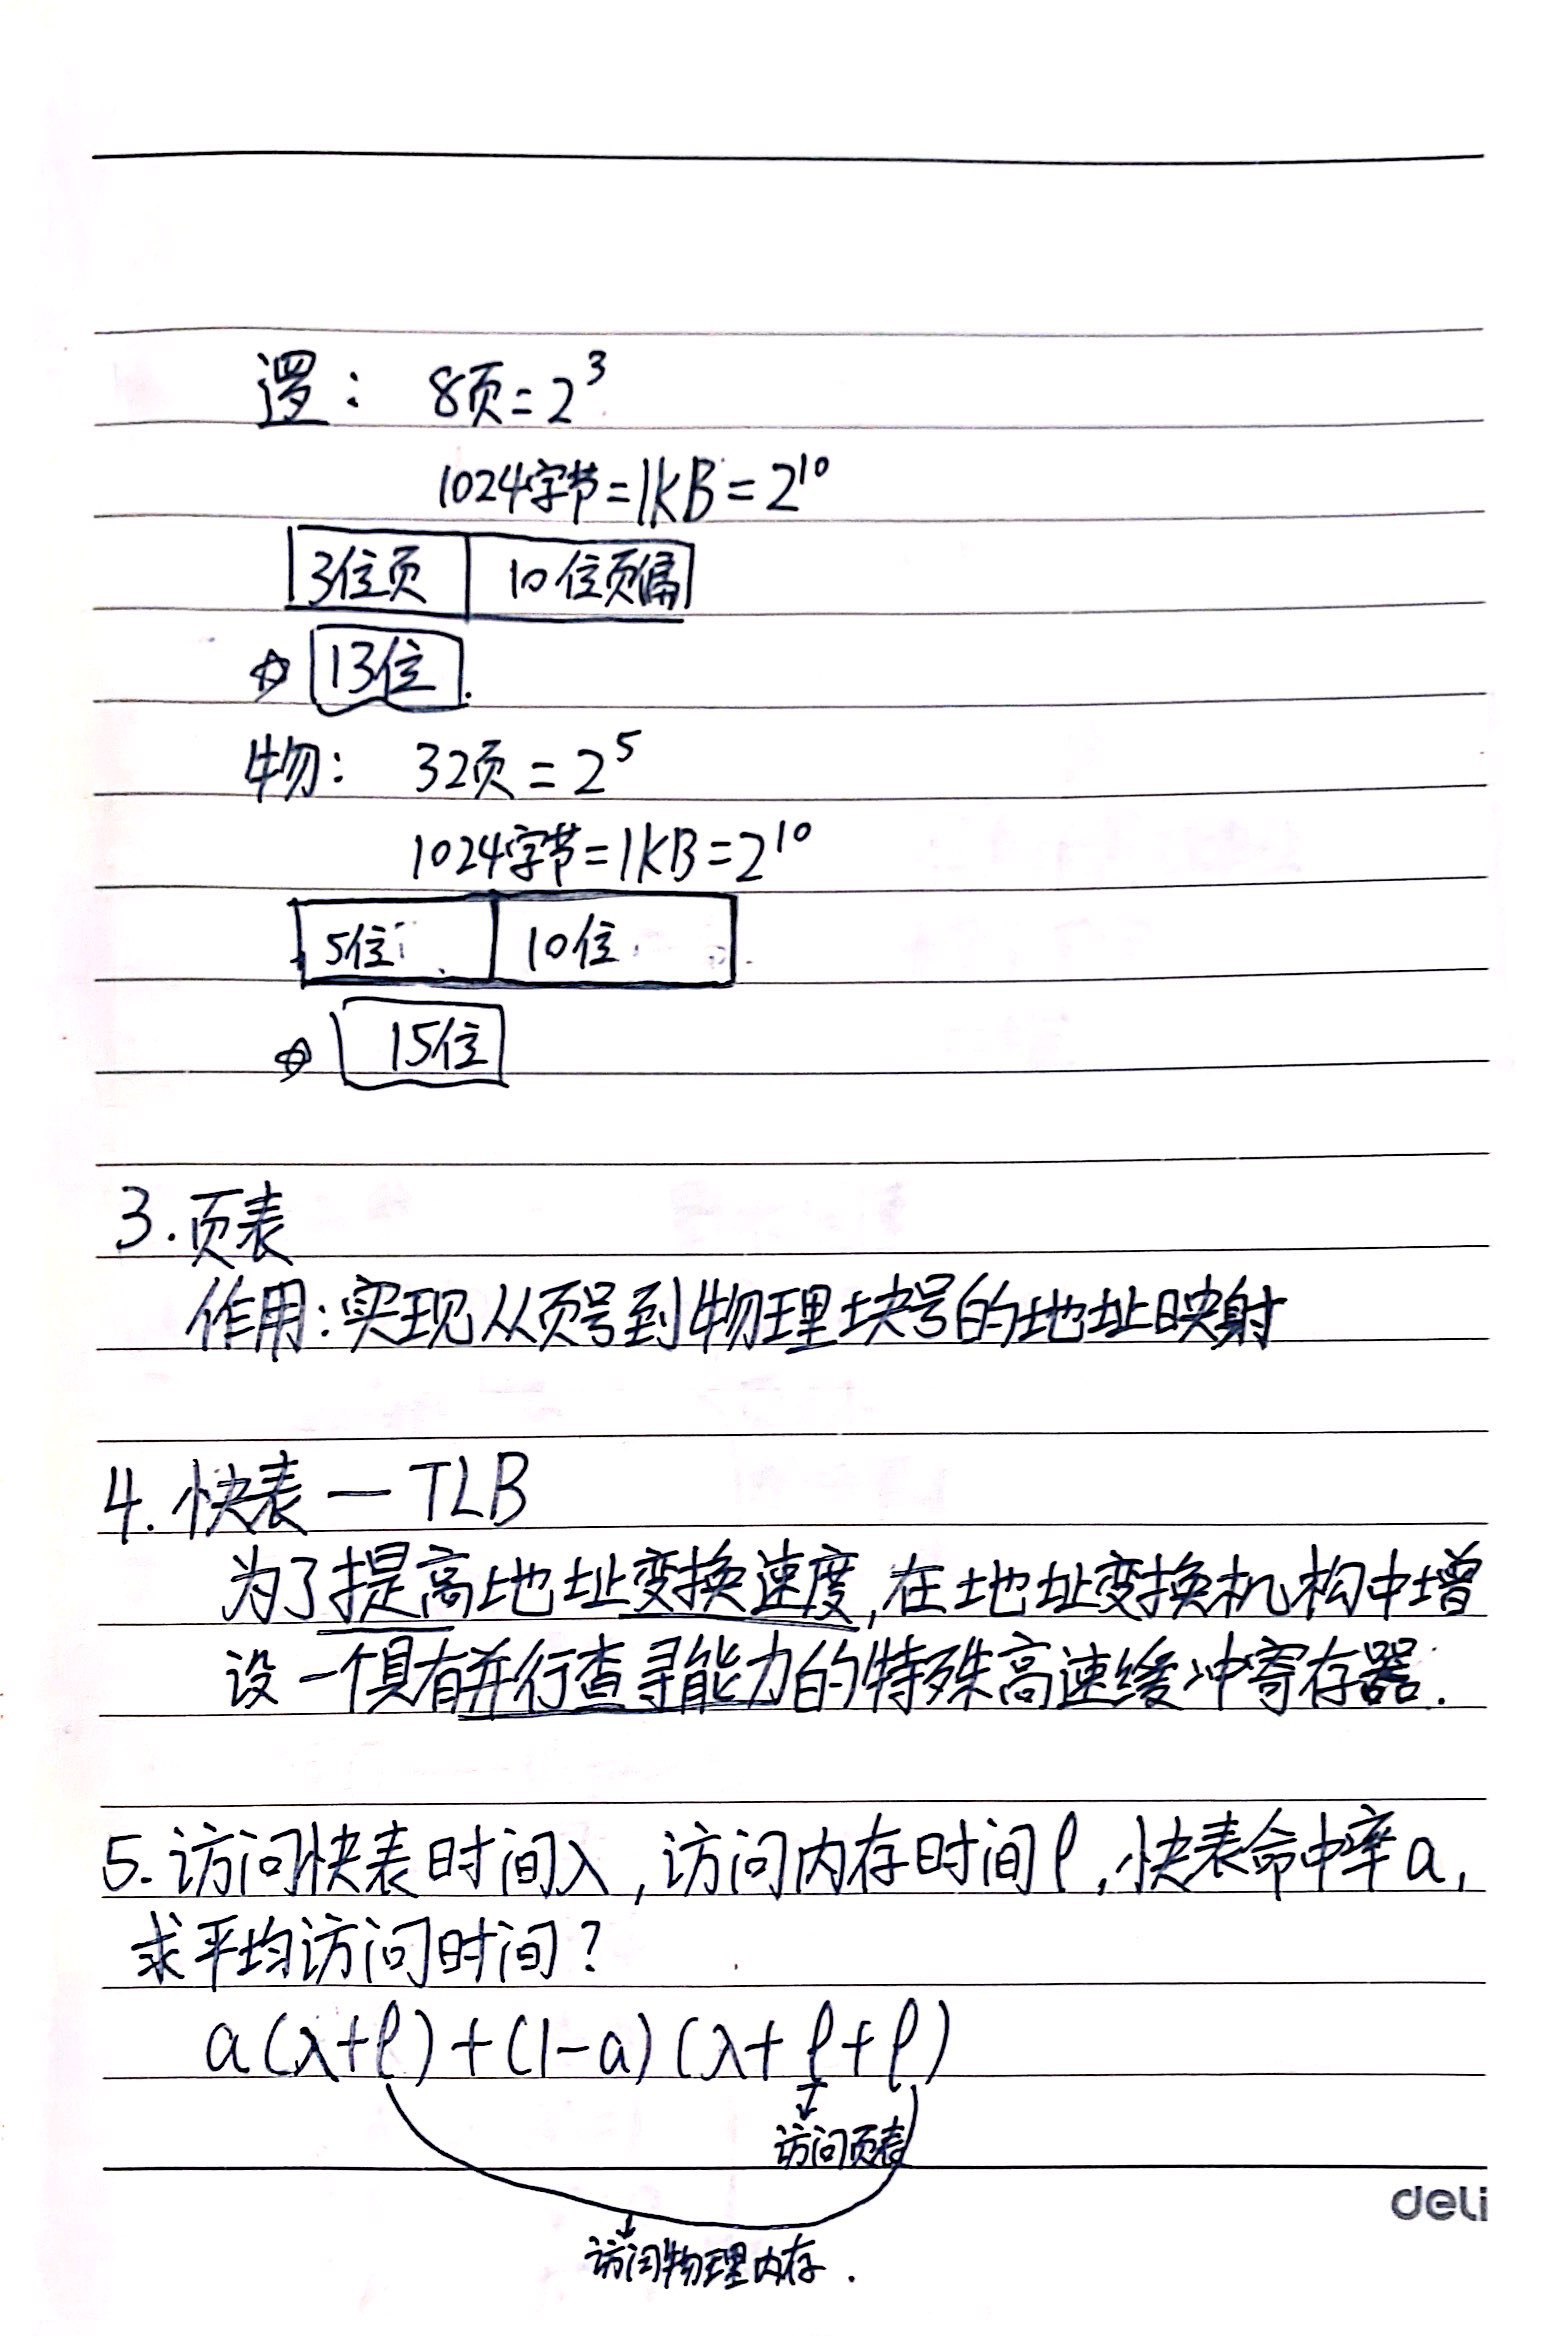 逻： 8页=2³
1024字节=1KB=2¹⁰
3位页 10位页偏
☆ 13位.
物： 32页=2⁵
1024字节=1KB=2¹⁰
5位 10位
☆ 15位
3.页表
作用：实现从页号到物理块号的地址映射
4.快表—TLB
为了提高地址变换速度,在地址变换机构中增
设一个具有并行查寻能力的特殊高速缓冲寄存器.
5.访问快表时间λ,访问内存时间ℓ,快表命中率a,
求平均访问时间?
a(λ+ℓ)+(1-a)(λ+ℓ+ℓ)
访问页表
deli
访问物理内存.